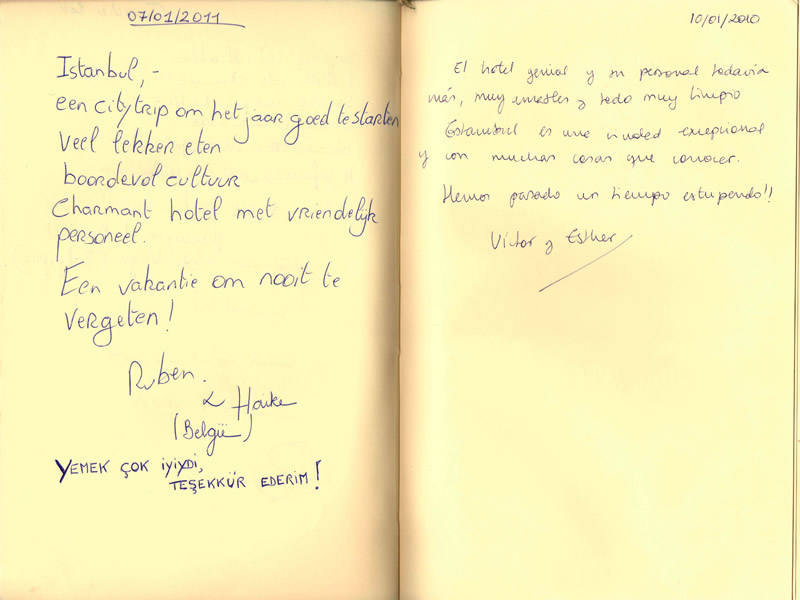 07/01/2011
Istanbul,-
een citytrip om het jaar goed te starten
Veel lekker eten
boordevol cultuur
Charmant hotel met vriendelijk
personeel.
Een vakantie om nooit te
vergeten!
Ruben.
&
(België)
YEMEK ÇOK İYİYDİ,
TEŞEKKÜR EDERİM!
10/01/2010
El hotel genial y su personal todavía
más, muy amables y todo muy limpio
Estambul es una ciudad excepcional
y con muchas cosas que conocer.
Hemos pasado un tiempo estupendo!!
Víctor y Esther